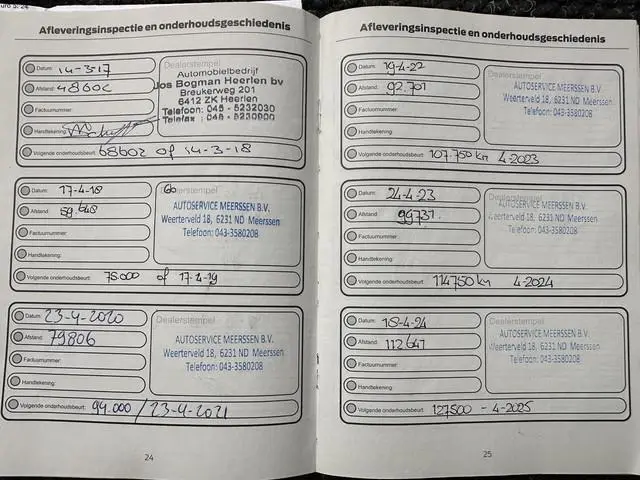 Afleveringsinspectie en onderhoudsgeschiedenis
Datum: 14-3-17
Afstand: 48602
Factuurnummer:
Handtekening:
Volgende onderhoudsbeurt: 68602 of 14-3-18
Dealerstempel
Automobielbedrijf
Jos Bogman Heerlen bv
Breukerweg 201
6412 ZK Heerlen
Telefoon: 045 - 5232030
Telefax : 045 - 5230900
Datum: 17-4-18
Afstand: 59.648
Factuurnummer:
Handtekening:
Volgende onderhoudsbeurt: 75000 of 17-4-19
Dealerstempel
AUTOSERVICE MEERSSEN B.V.
Weerterveld 18, 6231 ND Meerssen
Telefoon: 043-3580208
Datum: 23-4-2020
Afstand: 79806
Factuurnummer:
Handtekening:
Volgende onderhoudsbeurt: 94.000 / 23-4-2021
Dealerstempel
AUTOSERVICE MEERSSEN B.V.
Weerterveld 18, 6231 ND Meerssen
Telefoon: 043-3580208
24
Afleveringsinspectie en onderhoudsgeschiedenis
Datum: 19-4-22
Afstand: 92.701
Factuurnummer:
Handtekening:
Volgende onderhoudsbeurt: 107.750 km 4-2023
Dealerstempel
AUTOSERVICE MEERSSEN B.V.
Weerterveld 18, 6231 ND Meerssen
Telefoon: 043-3580208
Datum: 24-4-23
Afstand: 99731
Factuurnummer:
Handtekening:
Volgende onderhoudsbeurt: 114750 km 4-2024
Dealerstempel
AUTOSERVICE MEERSSEN B.V.
Weerterveld 18, 6231 ND Meerssen
Telefoon: 043-3580208
Datum: 18-4-24
Afstand: 112641
Factuurnummer:
Handtekening:
Volgende onderhoudsbeurt: 127500 - 4-2025
Dealerstempel
AUTOSERVICE MEERSSEN B.V.
Weerterveld 18, 6231 ND Meerssen
Telefoon: 043-3580208
25